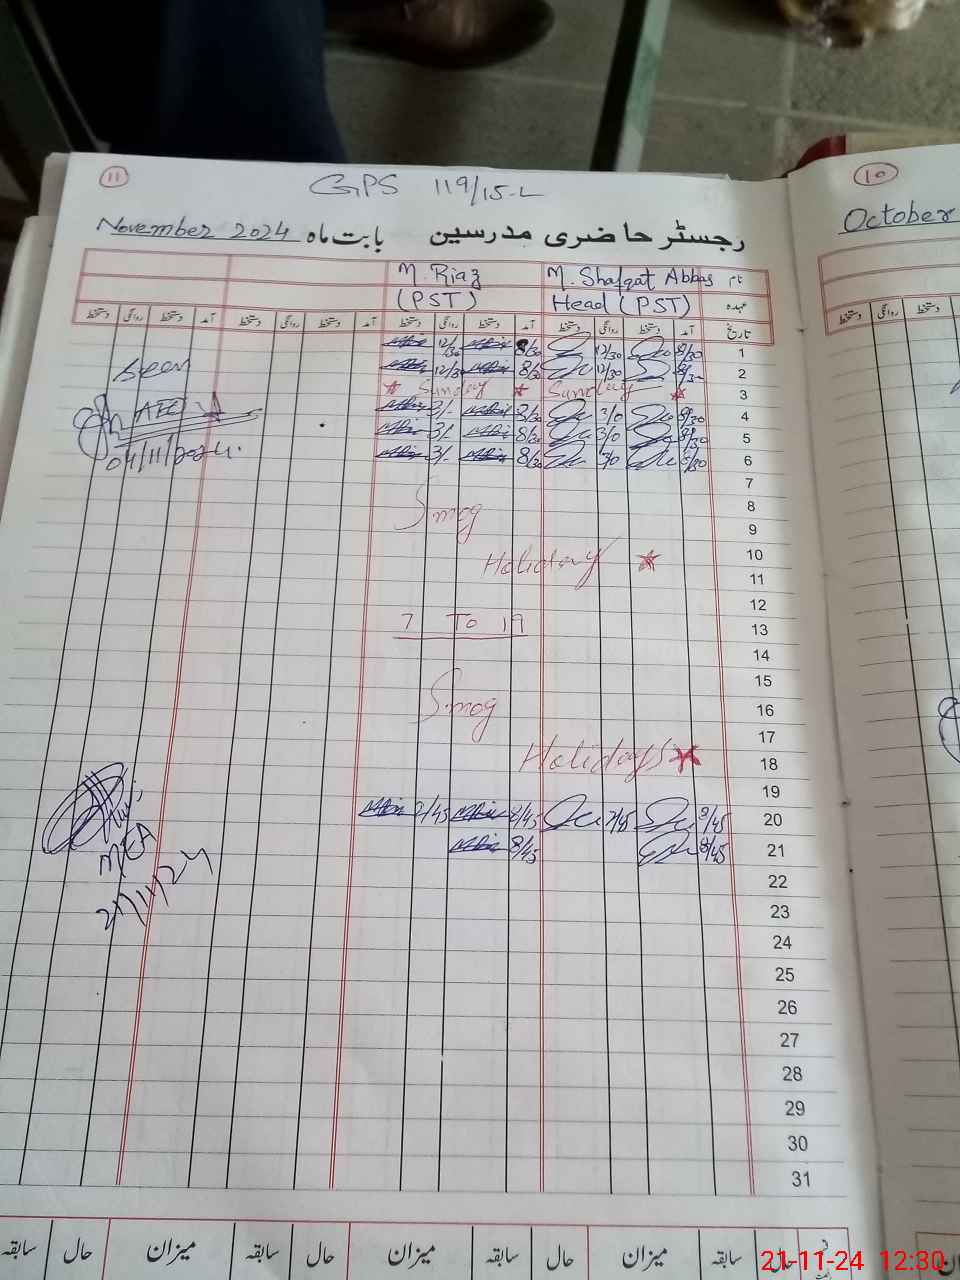 11
GPS 119/15-L
10
رجسٹر حاضری مدرسین بابت ماہ November 2024
October
نام M. Shafqat Abbas M. Riaz
عہدہ Head (PST) (PST)
تاریخ آمد دستخط روانگی دستخط آمد دستخط روانگی دستخط آمد دستخط روانگی دستخط آمد دستخط روانگی دستخط
روانگی دستخط
1 8/30 12/30 8/30 12/30
2 8/30 12/30 8/30 12/30
Seen
3 Sunday Sunday
4 8/30 3/0 8/30 3/-
AEO
5 8/30 3/0 8/30 3/-
04/11/2024.
6 8/30 3/0 8/30 3/-
7
8
Smog
9
10
Holiday
11
12
13
7 To 19
14
15
16
Smog
17
18
Holidays
19
20 8/45 2/45 8/45 2/45
21 8/45 8/45
MEA
21/11/24
22
23
24
25
26
27
28
29
30
31
حال سابقہ میزان حال سابقہ میزان حال سابقہ میزان حال سابقہ
21-11-24 12:30